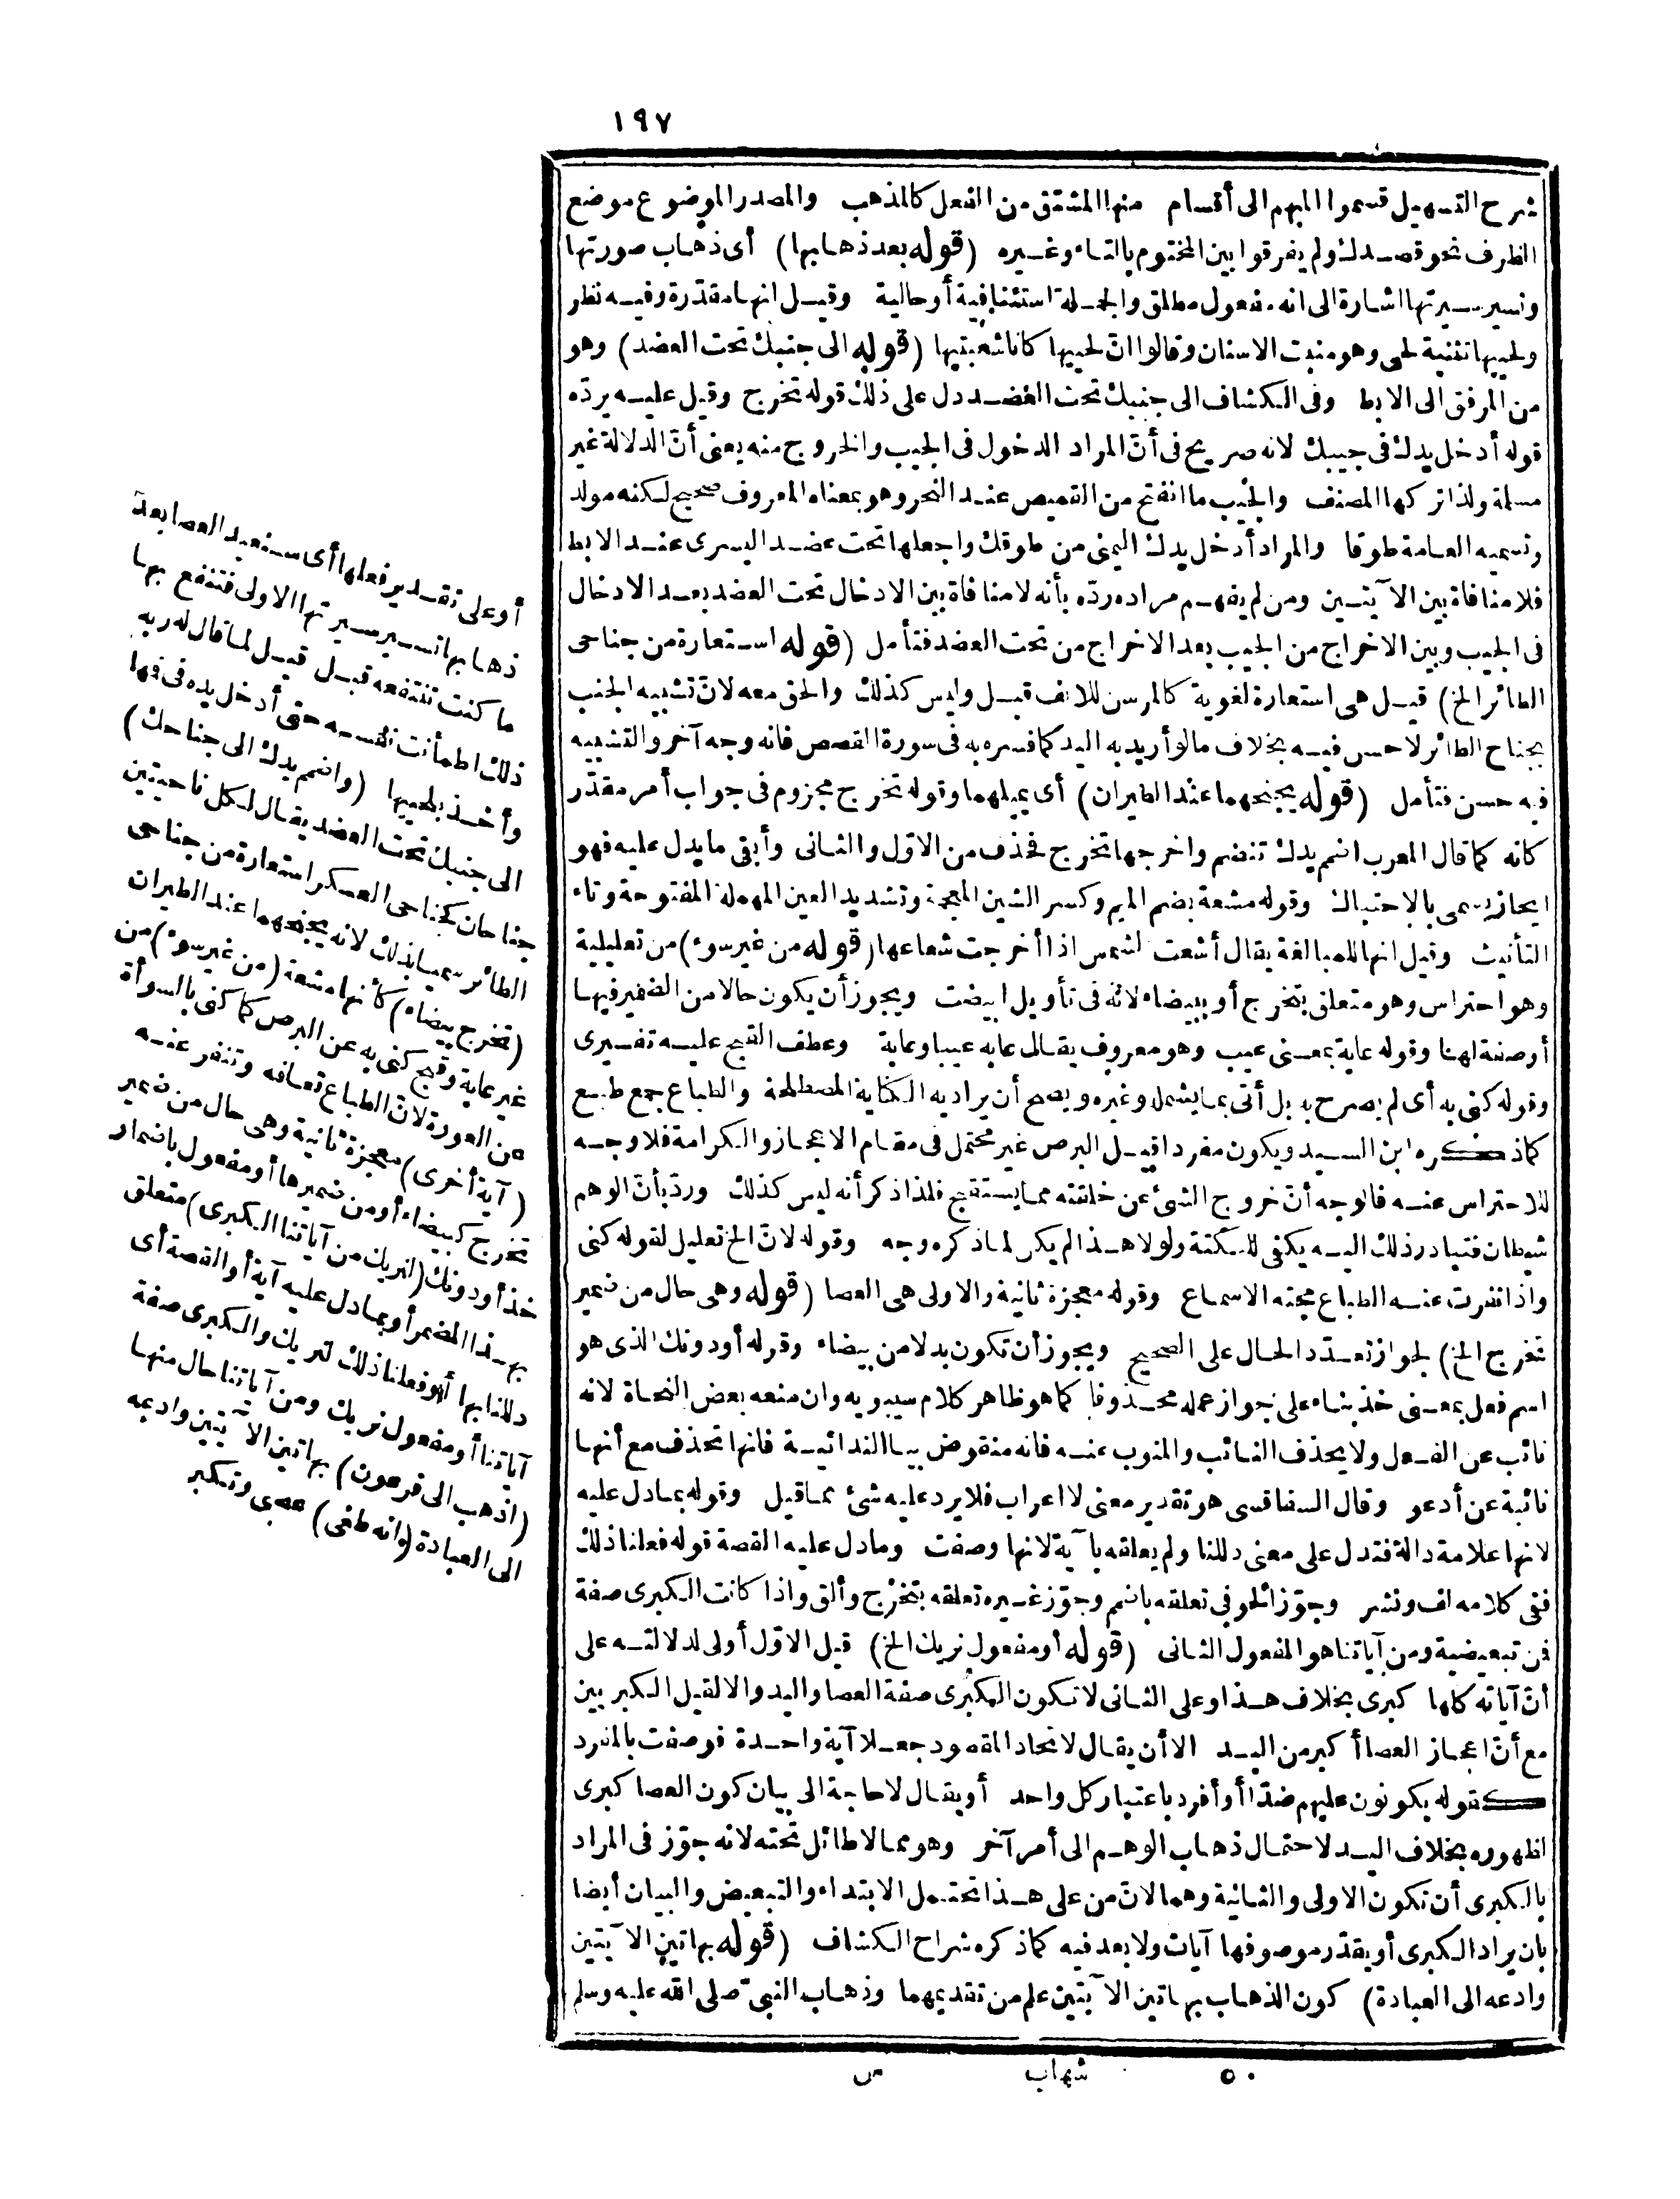 ١٩٧
شرح التسهيل قسموا المبهم الى أقسام منها المشتق من الفعل كالمذهب والمصدر الموضوع موضع
الظرف نحو قصدك ولم يفرقوا بين المختوم بالتاء وغيره (قوله بعد ذهابها) أى ذهاب صورتها
ونسير سيرتها اشارة الى انه مفعول مطلق والجملة استئنافية أو حالية وقيل انها مقدّرة وفيه نظر
ولحييها تثنية لحى وهو منبت الاسنان وقالوا انّ لحييها كانا شعبتيها (قوله الى جنبك تحت العضد) وهو
من المرفق الى الابط وفى الكشاف الى جنبك تحت العضد دل على ذلك قوله تخرج وقيل عليه يردّه
قوله أدخل يدك فى جيبك لانه صريح فى أنّ المراد الدخول فى الجيب والخروج منه يعنى أنّ الدلالة غير
مسلمة ولذا تركها المصنف والجيب ما انفتح من القميص عند النحر وهو بمعناه المعروف صحيح لكنه مولد
وتسميه العامة طوقا والمراد أدخل يدك اليمنى من طوقك واجعلها تحت عضد اليسرى عند الابط
فلا منافاة بين الآيتين ومن لم يفهم مراده ردّه بأنه لا منافاة بين الادخال تحت العضد بعد الادخال
فى الجيب وبين الاخراج من الجيب بعد الاخراج من تحت العضد فتأمل (قوله استعارة من جناحى
الطائر الخ) قيل هى استعارة لغوية كالمرسن للانف قيل وليس كذلك والحق معه لانّ تشبيه الجنب
بجناح الطائر لا حسن فيه بخلاف ما لو أريد به اليد كما فسره به فى سورة القصص فانه وجه آخر والتشبيه
فيه حسن فتأمل (قوله يجنحهما عند الطيران) أى يميلهما وقوله تخرج مجزوم فى جواب أمر مقدّر
كانه كما قال المعرب اضمم يدك تنضم واخرجها تخرج فحذف من الاوّل والثانى وأبقى ما يدل عليه فهو
ايجاز يسمى بالاحتباك وقوله مشعة بضم الميم وكسر الشين المعجمة وتشديد العين المهملة المفتوحة وتاء
التأنيث وقيل انها للمبالغة يقال أشعت الشمس اذا أخرجت شعاعها (قوله من غير سوء) من تعليلية
وهو احتراس وهو متعلق بتخرج أو ببيضاء لانه فى تأويل ابيضت ويجوز أن يكون حالا من الضمير فيها
أو صفة لها وقوله عاية بمعنى عيب وهو معروف يقال عابه عيبا وعابة وعطف القبح عليه تفسيرى
وقوله كنى به أى لم يصرح به بل أتى بما يشمله وغيره ويصح أن يراد به الكناية المصطلحة والطباع جمع طبع
كما ذكره ابن السيد ويكون مفردا قيل البرص غير محتمل فى مقام الاعجاز والكرامة فلا وجه
للاحتراس عنه فالوجه أنّ خروج الشئ عن خلقته مما يستقبح فلذا ذكر أنه ليس كذلك وردّ بأنّ الوهم
شيطان فتبادر ذلك اليه يكفى للنكتة ولولا هذا لم يكن لما ذكره وجه وقوله لانّ الخ تعليل لقوله كنى
واذا نفرت عنه الطباع مجته الاسماع وقوله معجزة ثانية والاولى هى العصا (قوله وهى حال من ضمير
تخرج الخ) لجواز تعدّد الحال على الصحيح ويجوز أن تكون بدلا من بيضاء وقوله أو دونك الذى هو
اسم فعل بمعنى خذ بناء على جواز عمله محذوفا كما هو ظاهر كلام سيبويه وان منعه بعض النحاة لانه
نائب عن الفعل ولا يحذف النائب والمنوب عنه فانه منقوض بيا الندائية فانها تحذف مع أنها
نائبة عن أدعو وقال السفاقسى هو تقدير معنى لا اعراب فلا يرد عليه شئ مما قيل وقوله بما دل عليه
لانها علامة دالة فتدل على معنى دللنا ولم يعلقه بآية لانها وصفت وما دل عليه القصة قوله فعلنا ذلك
ففى كلامه لف ونشر وجوّز الحوفى تعلقه باضمم وجوّز غيره تعلقه بتخرج وألق واذا كانت الكبرى صفة
فمن تبعيضية ومن آياتنا هو المفعول الثانى (قوله أو مفعول نريك الخ) قيل الاوّل أولى لدلالته على
أنّ آياته كلها كبرى بخلاف هذا وعلى الثانى لا تكون الكبرى صفة العصا واليد والا لقيل الكبريين
مع أنّ اعجاز العصا أكبر من اليد الا أن يقال لاتحاد المقصود جعلا آية واحدة فوصفت بالمفرد
كقوله يكونون عليهم ضدّا أو أفرد باعتبار كل واحد أو يقال لا حاجة الى بيان كون العصا كبرى
لظهوره بخلاف اليد لاحتمال ذهاب الوهم الى أمر آخر وهو مما لا طائل تحته لانه جوّز فى المراد
بالكبرى أن تكون الاولى والثانية وهما لانّ من على هذا تحتمل الابتداء والتبعيض والبيان أيضا
بان يراد الكبرى أو يقدّر موصوفها آيات ولا بعد فيه كما ذكره شراح الكشاف (قوله بهاتين الآيتين
وادعه الى العبادة) كون الذهاب بهاتين الآيتين علم من تقديمهما وذهاب النبىّ صلى الله عليه وسلم
أو على تقدير فعلها أى سنعيد العصا بعد
ذهابها تسير سيرتها الاولى فتنتفع بها
ما كنت تنتفعه قبل قيل لما قال له ربه
ذلك اطمأنت نفسه حتى أدخل يده فى فيها
وأخذ بلحييها (واضمم يدك الى جناحك)
الى جنبك تحت العضد يقال لكل ناحيتين
جناحان كجناحى العسكر استعارة من جناحى
الطائر سميا بذلك لانه يجنحهما عند الطيران
(تخرج بيضاء) كأنها مشعة (من غير سوء) من
غير عاية وقبح كنى به عن البرص كما كنى بالسوأة
عن العورة لانّ الطباع تعافه وتنفر عنه
(آية أخرى) معجزة ثانية وهى حال من ضمير
تخرج كبيضاء أو من ضميرها أو مفعول باضمار
خذ أو دونك (لنريك من آياتنا الكبرى) متعلق
بهذا المضمر أو بما دل عليه آية أو القصة أى
دللنا بها أو فعلنا ذلك لنريك والكبرى صفة
آياتنا أو مفعول نريك ومن آياتنا حال منها
(اذهب الى فرعون) بهاتين الآيتين وادعه
الى العبادة (انه طغى) عصى وتكبر
٥٠ شهاب س